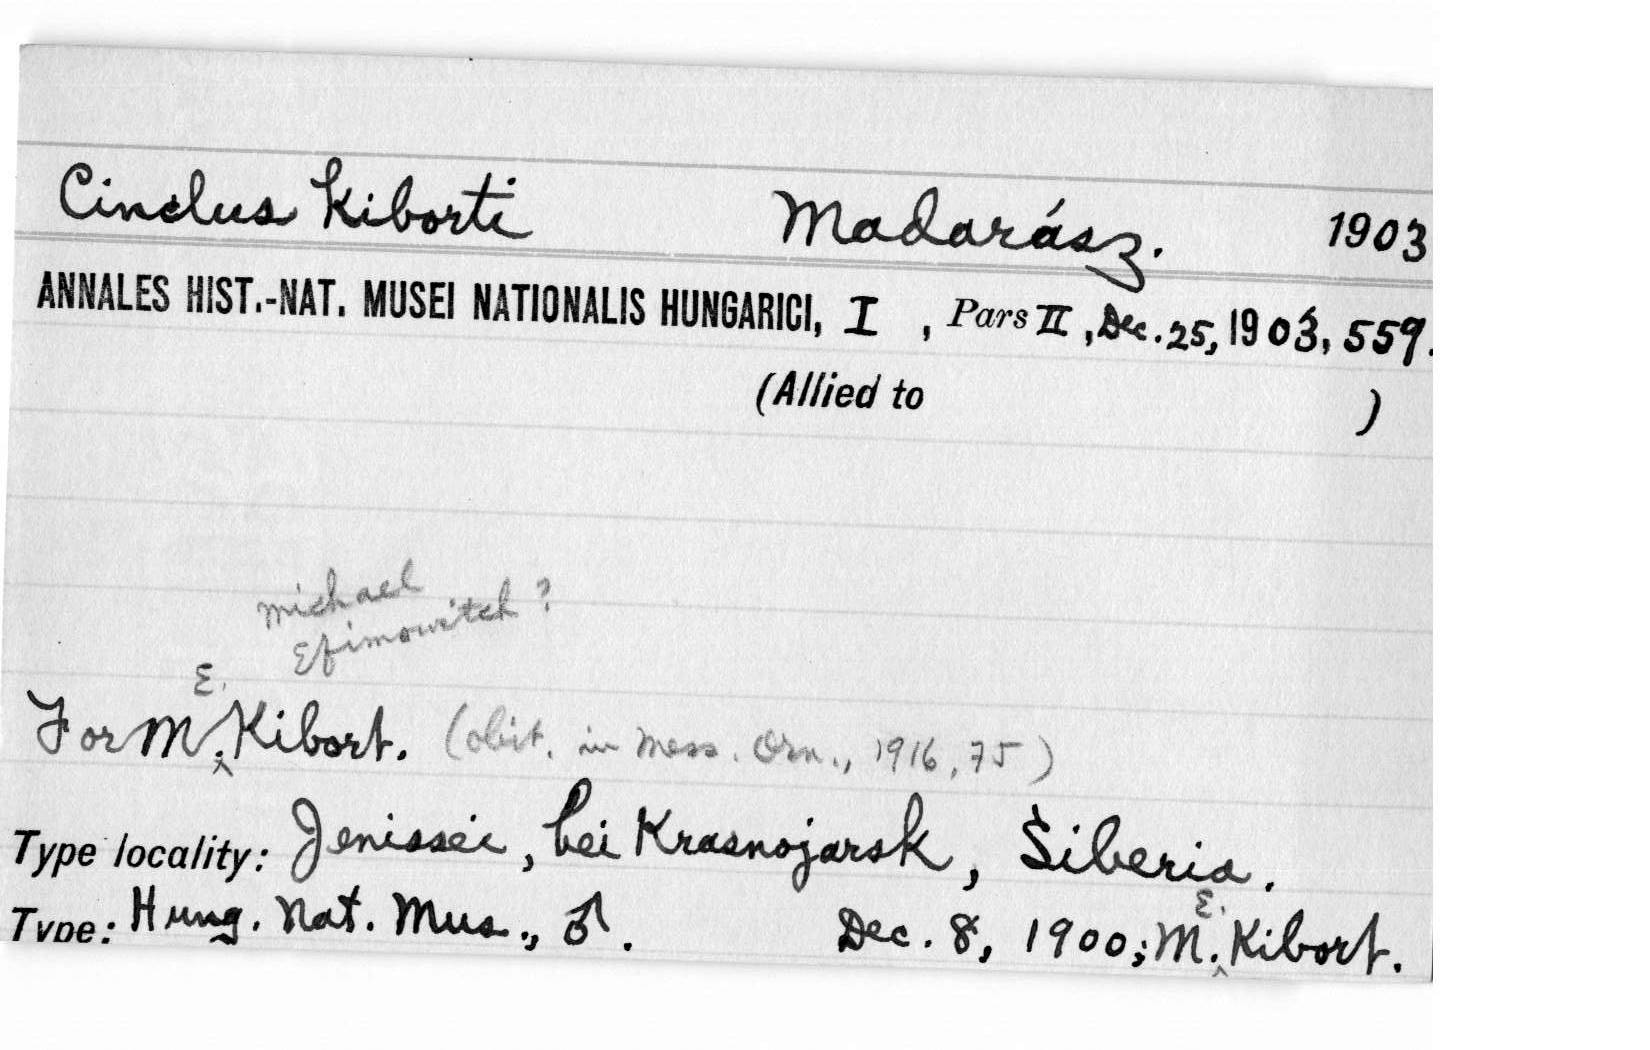 Cinclus Kiborti Madarász. 1903
ANNALES HIST.-NAT. MUSEI NATIONALIS HUNGARICI, I , Pars II, Dec. 25, 1903, 559.
(Allied to )
Michael
Efimowitch?
E.
For M. Kibort. (obit. in Mess. Orn., 1916, 75)
Type locality: Jenissei, bei Krasnojarsk, Siberia.
E.
Type: Hung. Nat. Mus., ♂. Dec. 8, 1900; M. Kibort.